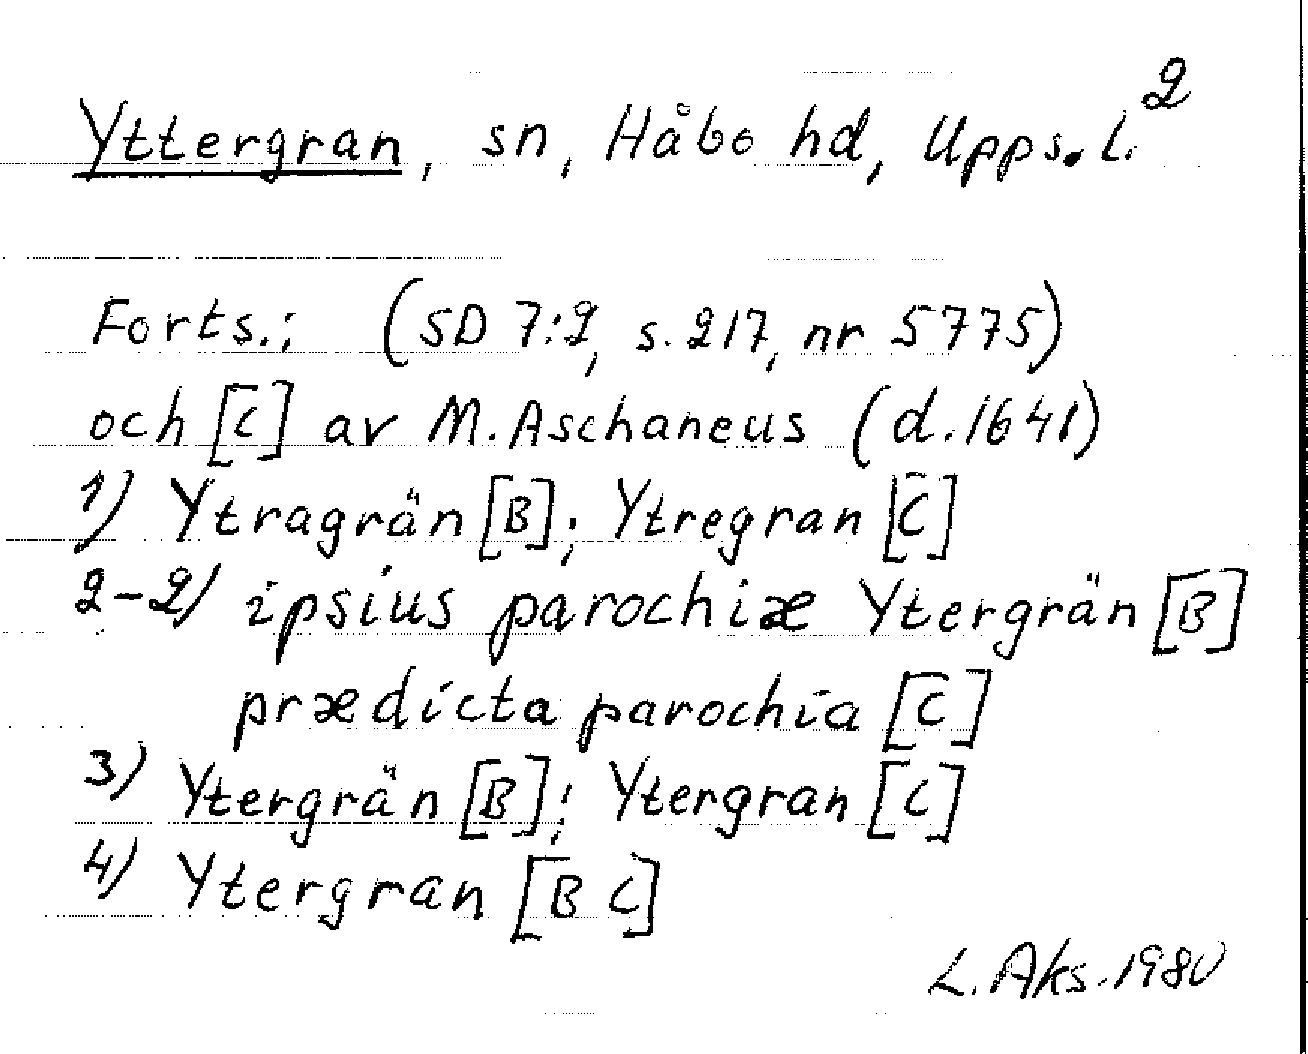 2
Yttergran, sn, Håbo hd, Upps. L.
Forts.: (SD 7:2, s. 217, nr 5775)
och [C] av M. Aschaneus (d. 1641)
1) Ytragrän [B]; Ytregran [C]
2-2) ipsius parochiæ Ytergrän [B]
prædicta parochia [C]
3) Ytergrän [B]; Ytergran [C]
4) Ytergran [B C]
L. Aks. 1980